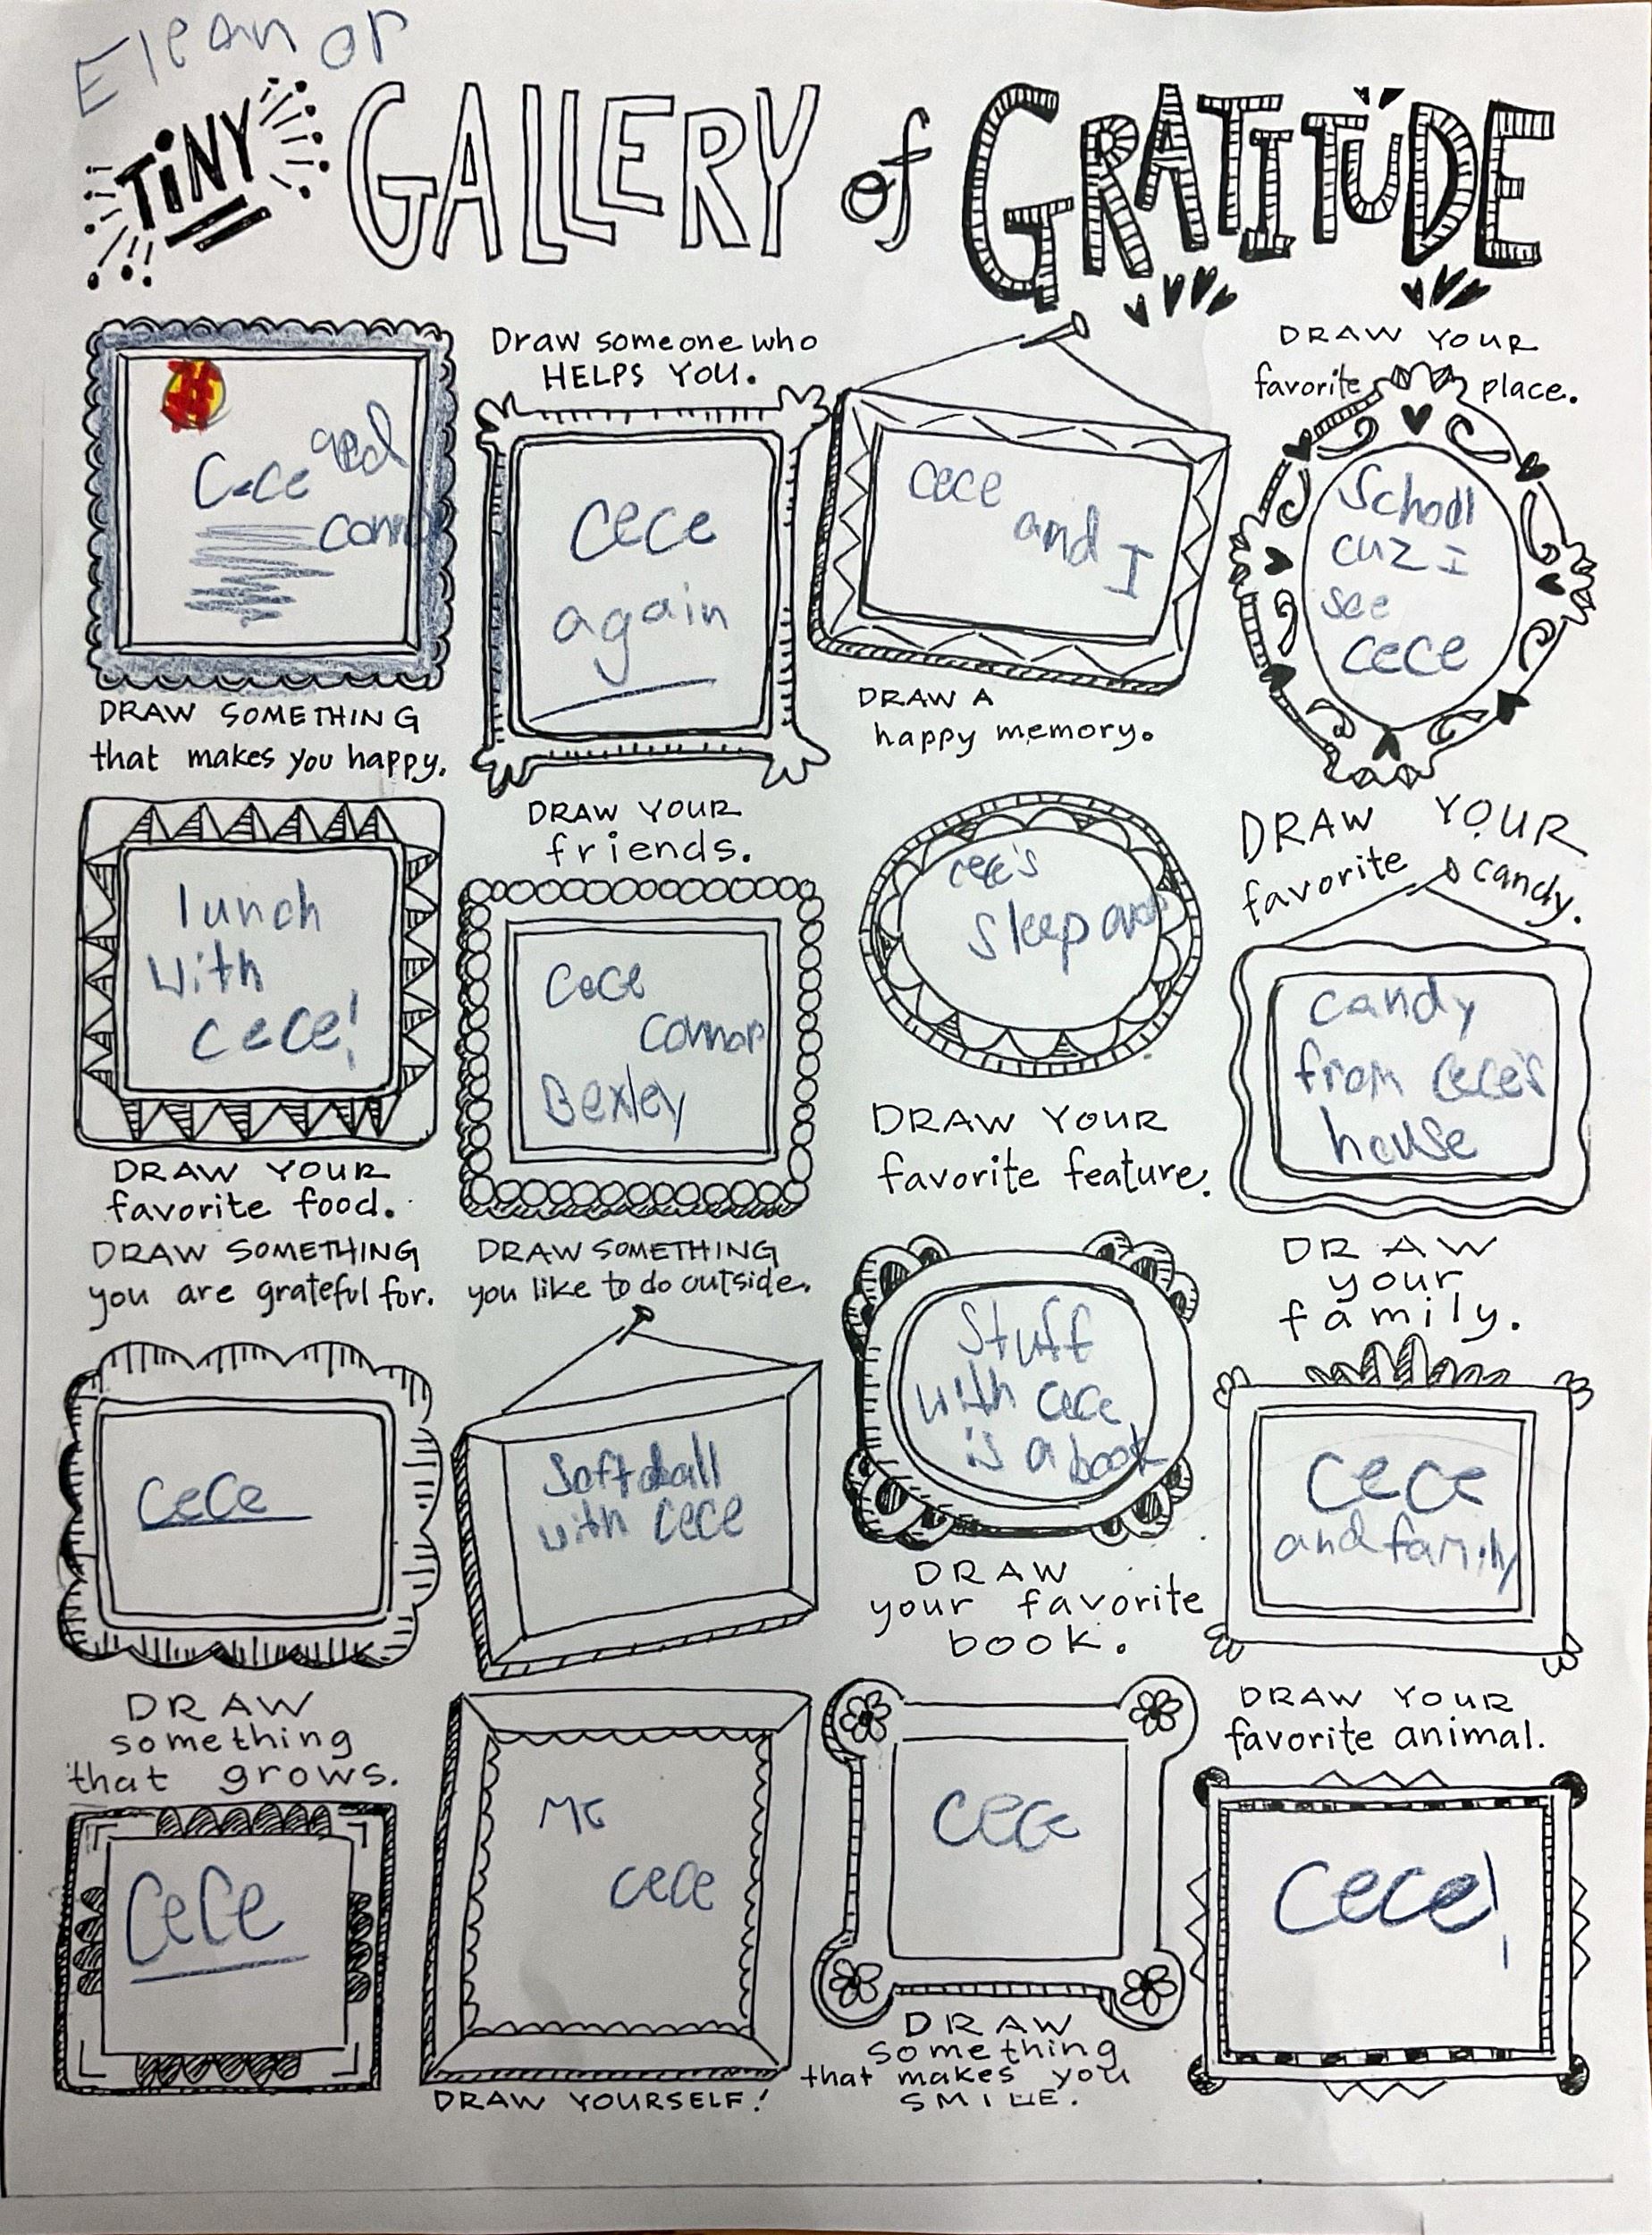 Eleanor
TiNY GALLERY of GRATITUDE
Cece and
connor
DRAW SOMETHING
that makes you happy.
Draw someone who
HELPS YOU.
cece
again
cece
and I
DRAW A
happy memory.
DRAW YOUR
favorite place.
School
cuz I
see
cece
lunch
with
cece!
DRAW YOUR
favorite food.
DRAW YOUR
friends.
Cece
Connor
Bexley
cece's
sleepover
DRAW YOUR
favorite feature.
DRAW YOUR
favorite candy.
candy
from cece's
house
DRAW SOMETHING
you are grateful for.
cece
DRAW SOMETHING
you like to do outside.
Softball
with cece
Stuff
with cece
is a book
DRAW
your favorite
book.
DRAW
your
family.
cece
and family
DRAW
something
that grows.
Cece
Me
cece
DRAW YOURSELF!
cece
DRAW
something
that makes you
SMILE.
DRAW YOUR
favorite animal.
cece!